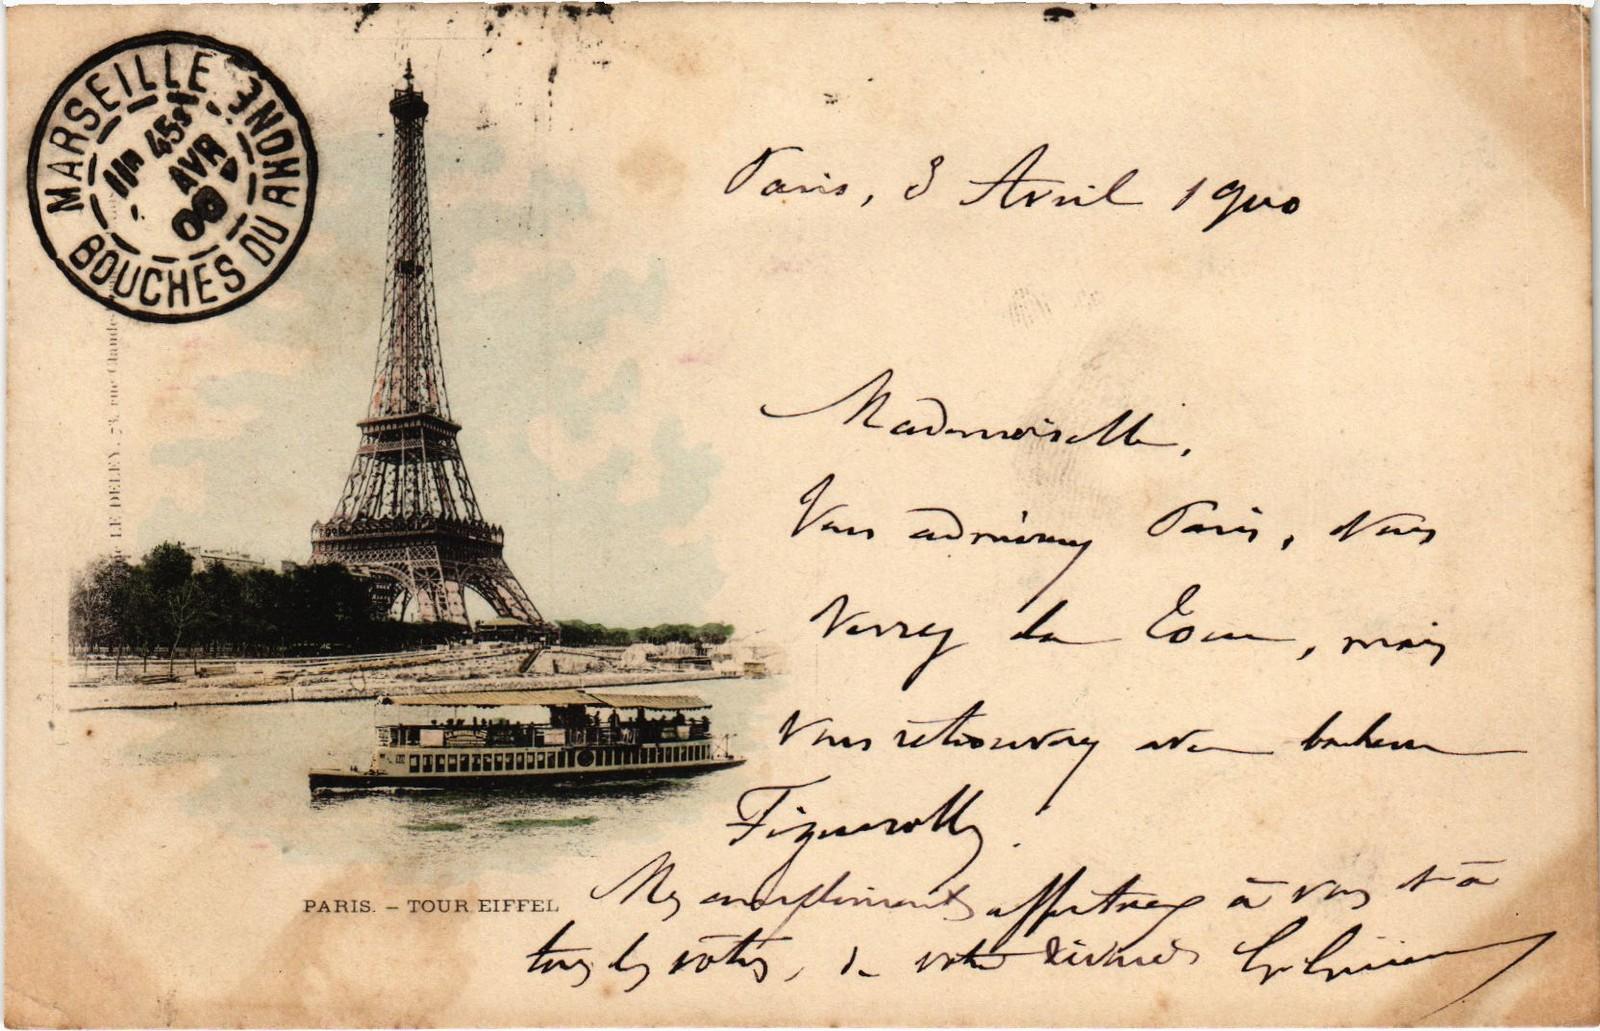 MARSEILLE
BOUCHES DU RHONE
11 45
AVR
00
LE DELEY, 73, rue Claude
Paris, 3 Avril 1900
Mademoiselle,
Vous admirerez Paris, Vous
Verrez la Tour, mais
Vous retrouverez avec bonheur
Figuerolles.
Mes compliments affectueux à vous et à
tous les vôtres, de votre
PARIS. – TOUR EIFFEL